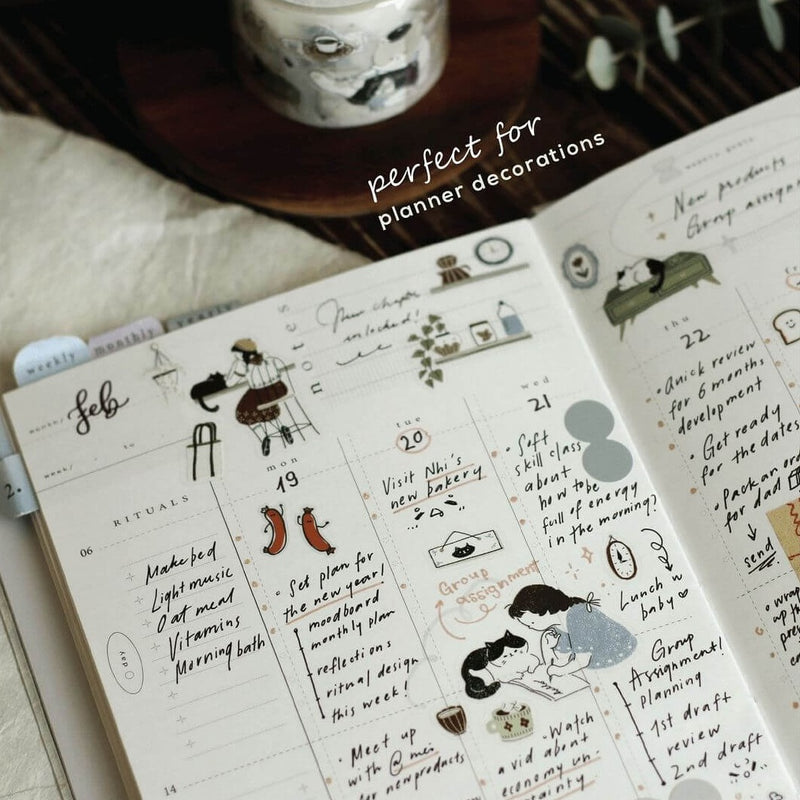 perfect for
planner decorations
weekly
monthly
yearly
month/
feb
week/
to
notes
New chapter
unlocked!
weekly goals
New products
Group assign
RITUALS
06
Make bed
Light music
Oat meal
Vitamins
Morning bath
day
14
2.
mon
19
• Set plan for
the new year!
moodboard
monthly plan
reflections
ritual design
this week!
• Meet up
with @mei
for new products
tue
20
Visit Nhi's
new bakery
Group
assignment
• Watch
a vid about
economy un-
certainty
wed
21
• Soft
skill class
about
how to be
full of energy
in the morning?
Lunch w
baby
Group
Assignment!
planning
1st draft
review
2nd draft
thu
22
• Quick review
for 6 months
development
• Get ready
for the dates
• Pack an
for dad
send